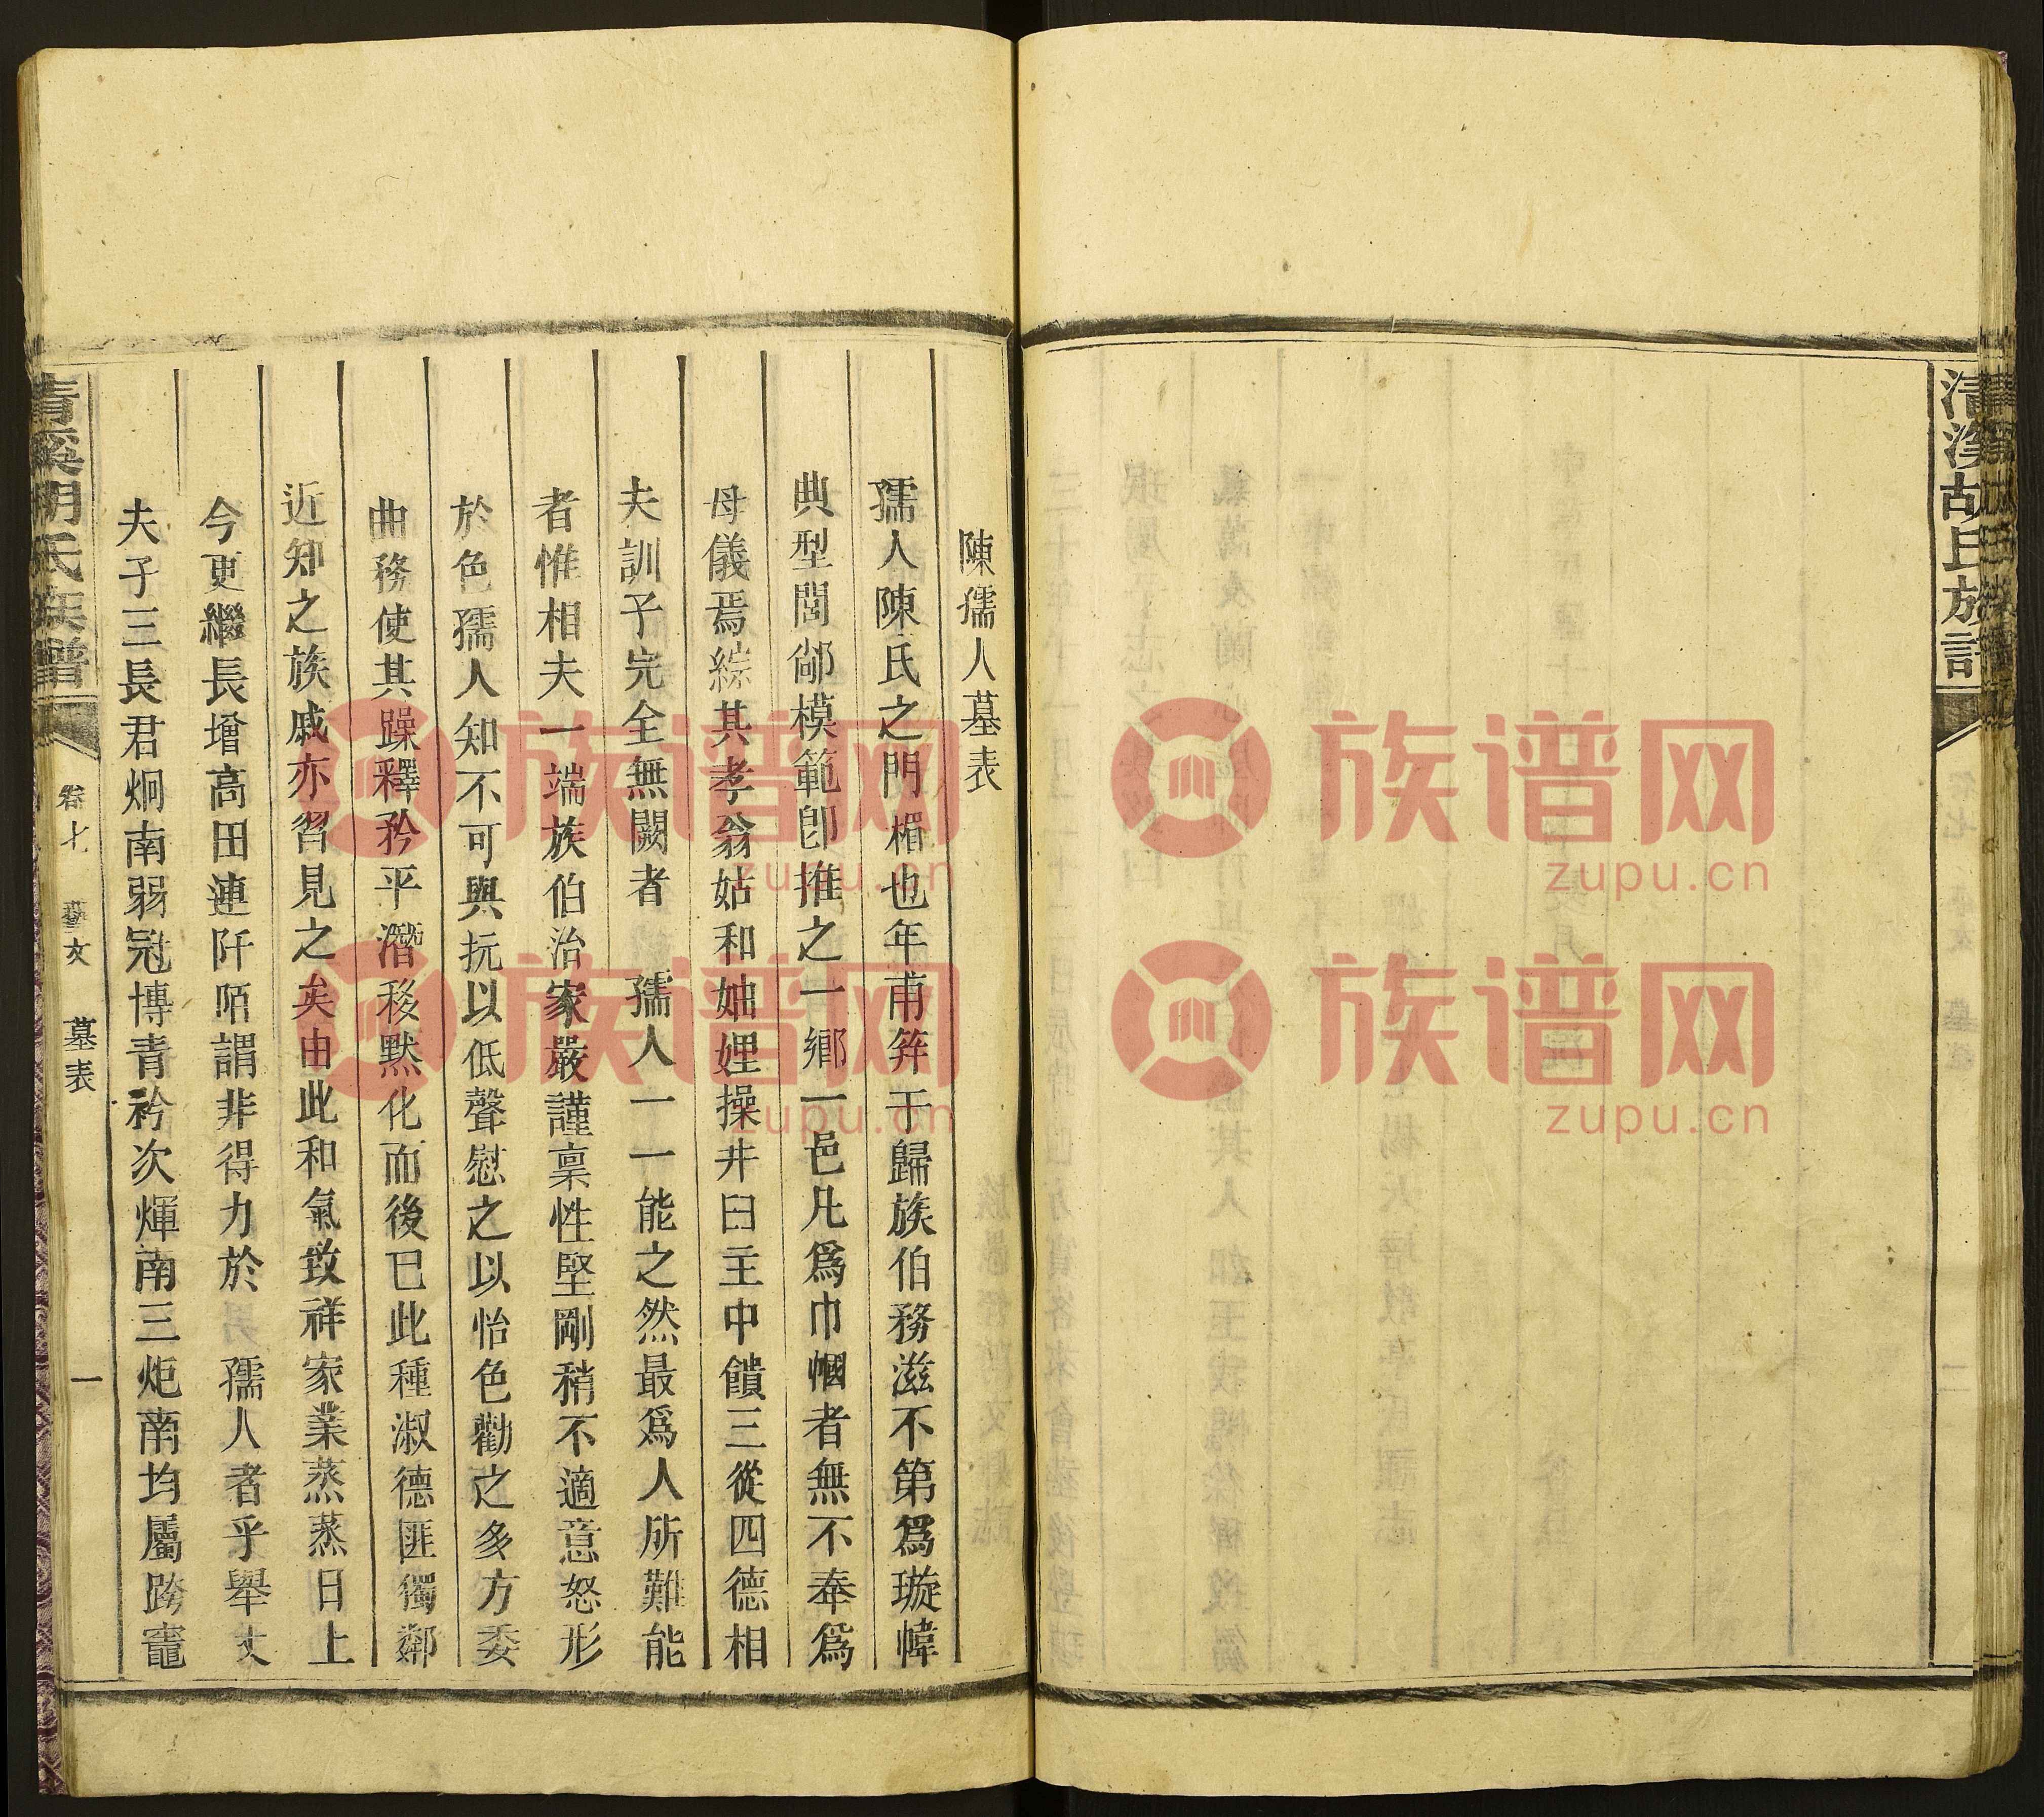 清溪胡氏族譜
陳孺人墓表
孺人陳氏之門楣也年甫筓于歸族伯務滋不第爲璇幃
典型閨鄰模範卽推之一鄉一邑凡爲巾幗者無不奉爲
母儀焉綜其孝翁姑和妯娌操井臼主中饋三從四德相
夫訓子完全無闕者 孺人一一能之然最爲人所難能
者惟相夫一端族伯治家嚴謹禀性堅剛稍不適意怒形
於色孺人知不可與抗以低聲慰之以怡色勸之多方委
曲務使其躁釋矜平潛移默化而後已此種淑德匪獨鄰
近知之族戚亦習見之矣由此和氣致祥家業蒸蒸日上
今更繼長增高田連阡陌謂非得力於 孺人者乎舉丈
夫子三長君炯南弱冠博青衿次煇南三炬南均屬跨竈
清溪胡氏族譜 卷七 藝文 墓表 一
族谱网
zupu.cn
族谱网
zupu.cn
族谱网
zupu.cn
族谱网
zupu.cn